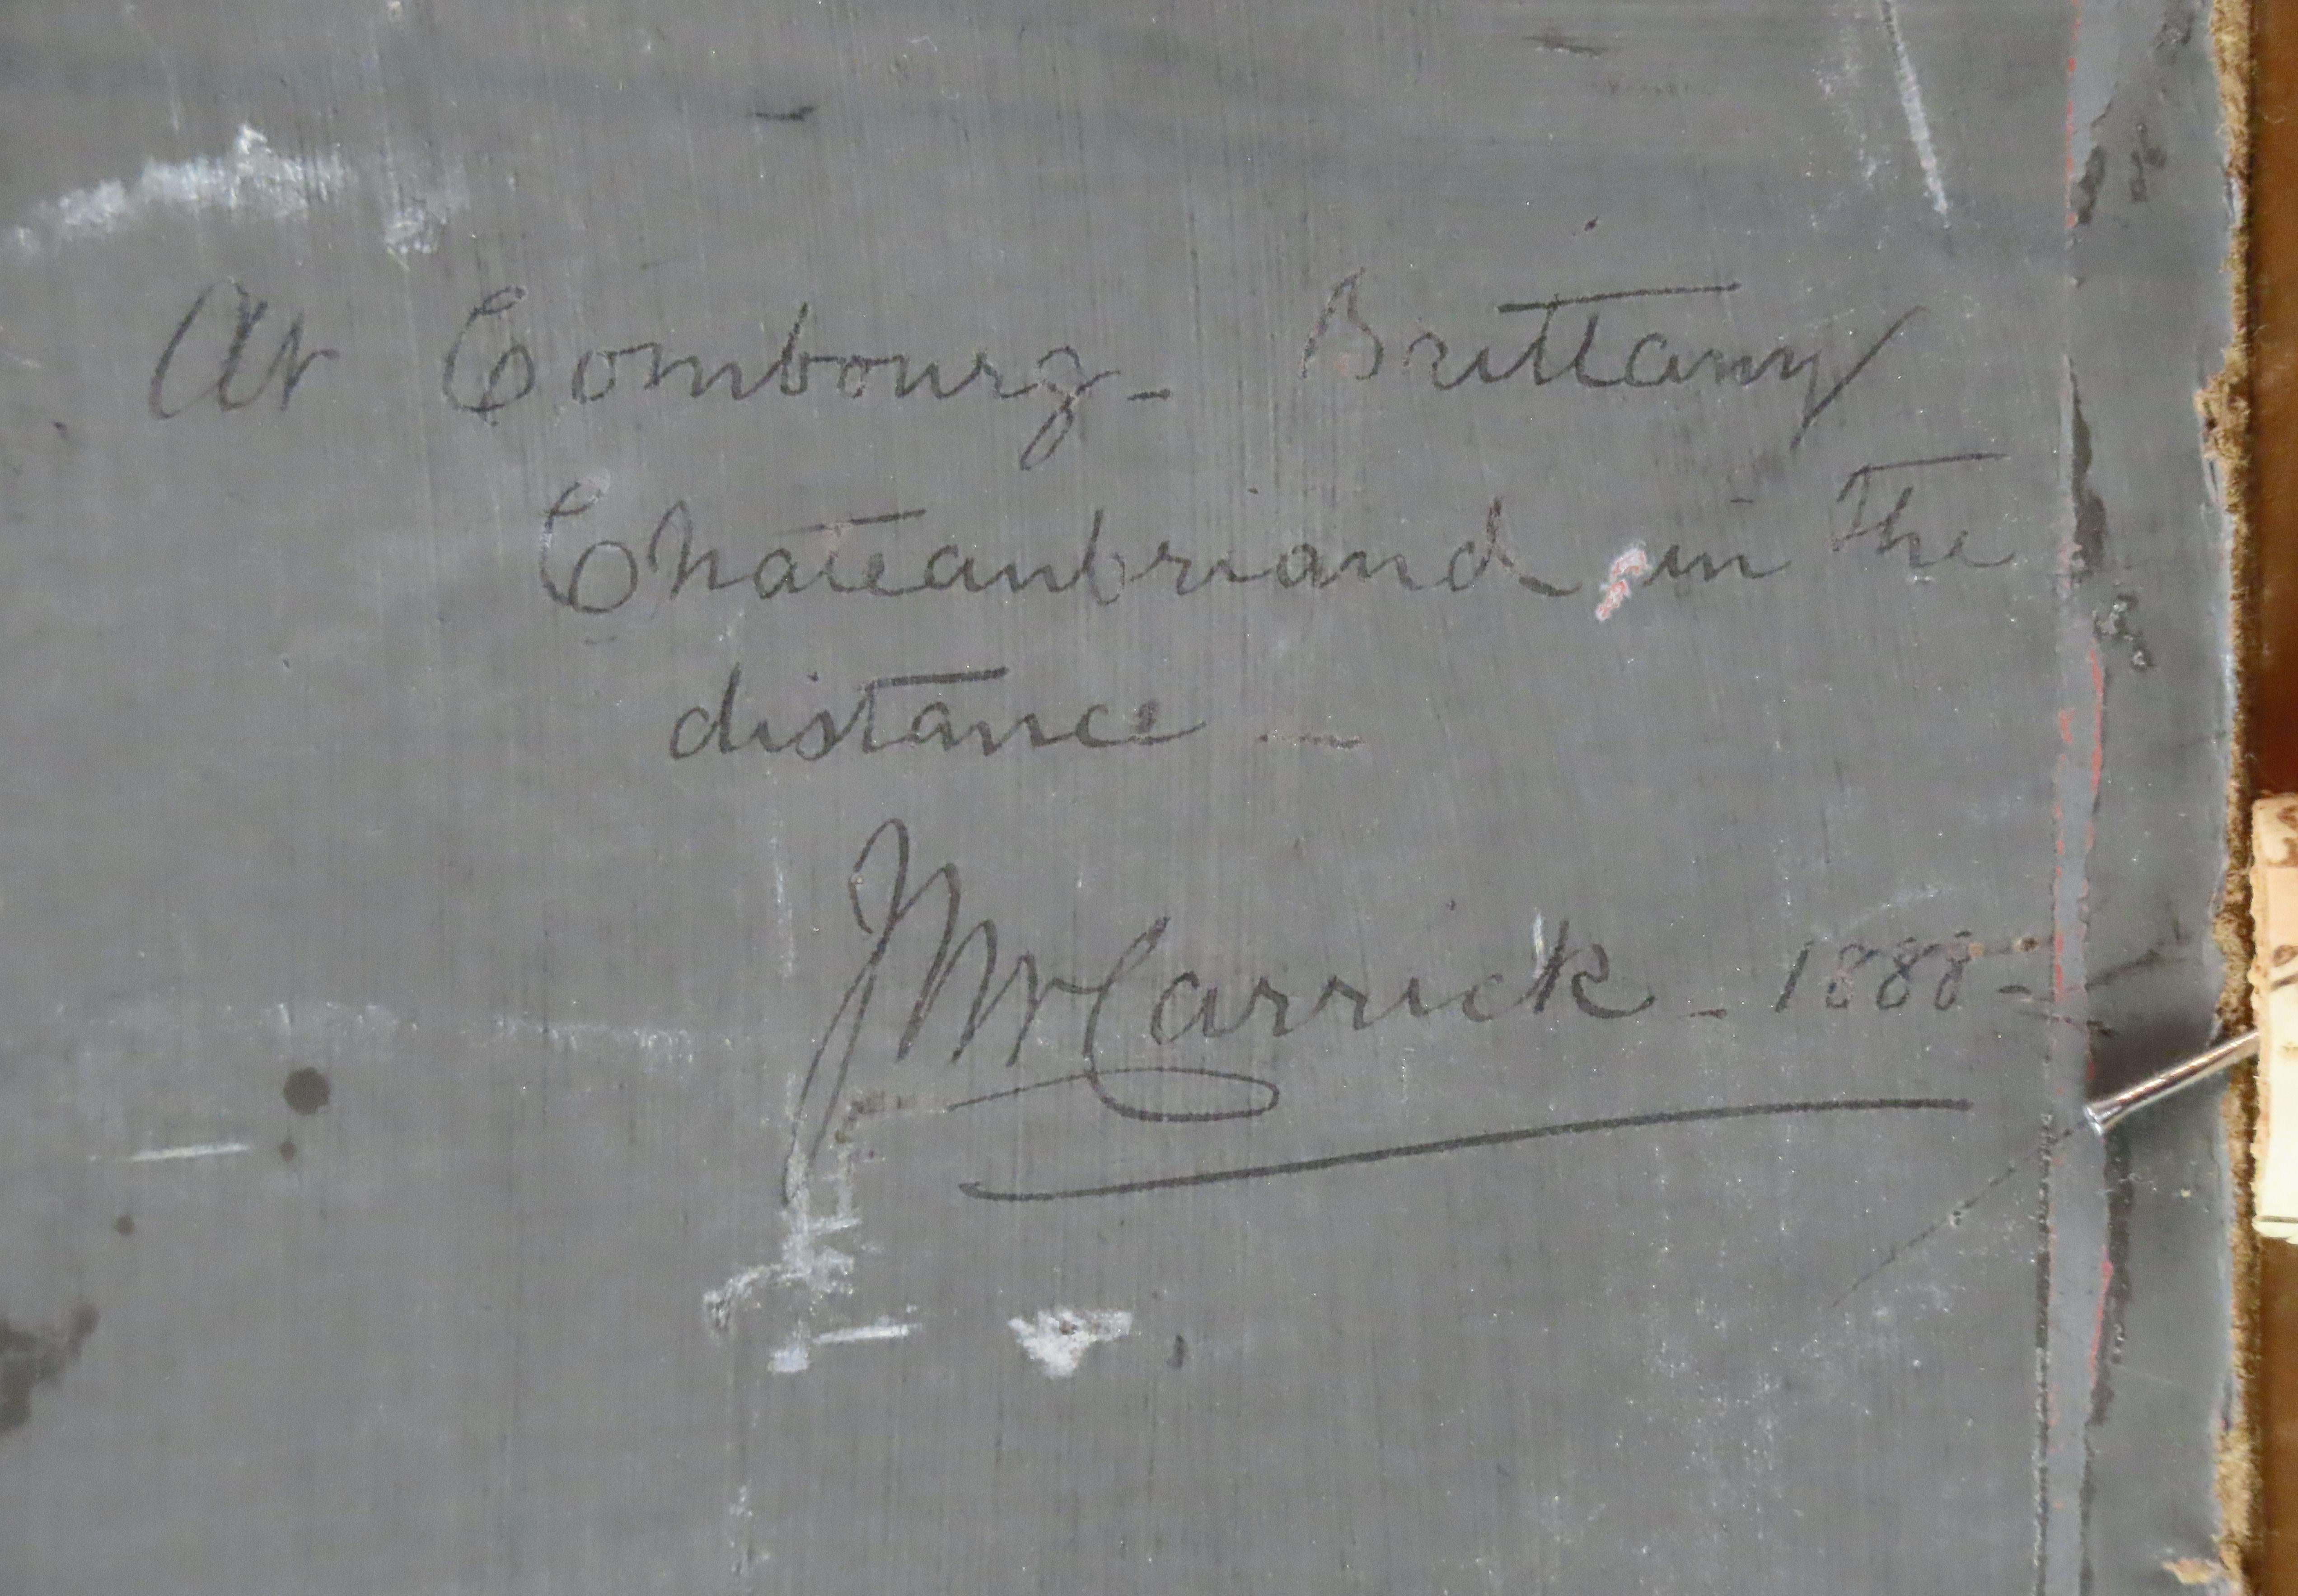 At Combourg - Brittany
Chateaubriand in the
distance —
JMcCarrick - 1888 -